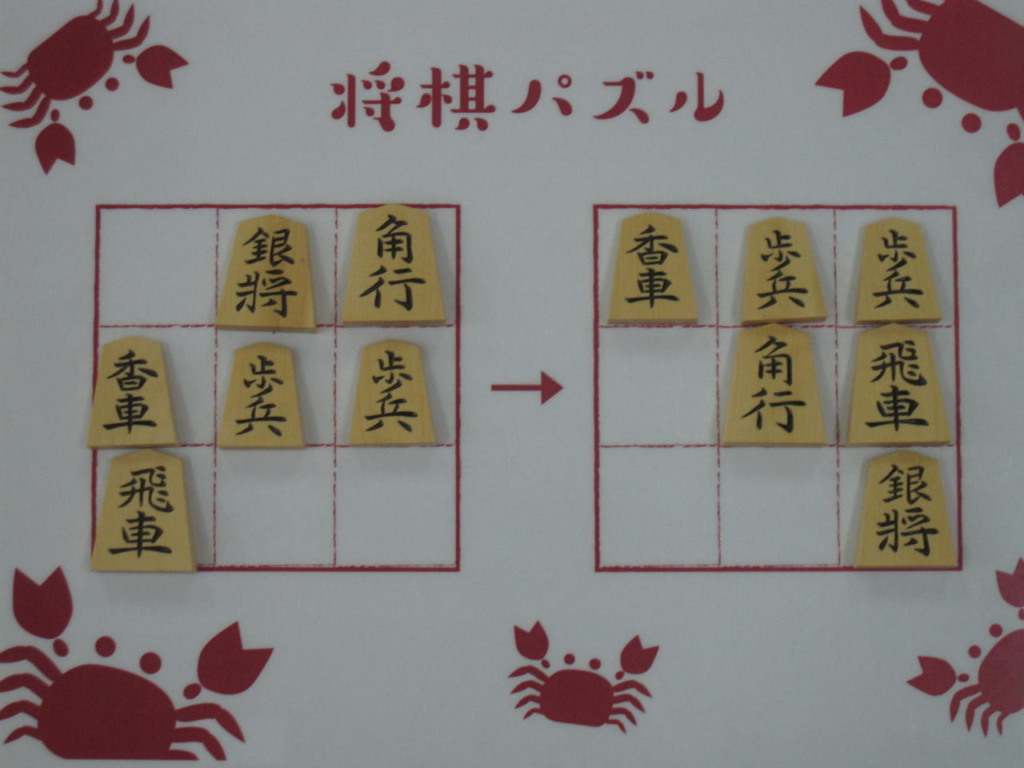 将棋パズル
銀将
角行
香車
歩兵
歩兵
飛車
香車
歩兵
歩兵
角行
飛車
銀将